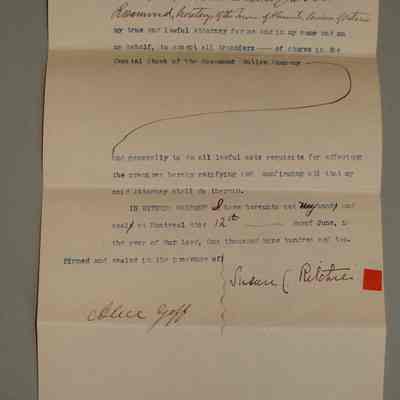 Rosamond, Secretary of the Town of Almonte, Province of Ontario
my true and lawful Attorney for me and in my name and on
my behalf, to accept all transfers — of shares in the
Capital Stock of the Rosamond Woolen Company
and generally to do all lawful acts requisite for effecting
the premises hereby ratifying and confirming all that my
said Attorney shall do therein.
IN WITNESS WHEREOF I have hereunto set my hand and
seal at Montreal this 12th day of June, in
the year of Our Lord, One thousand nine hundred and ten.
Signed and sealed in the presence of
Susan C Ritchie
Goff